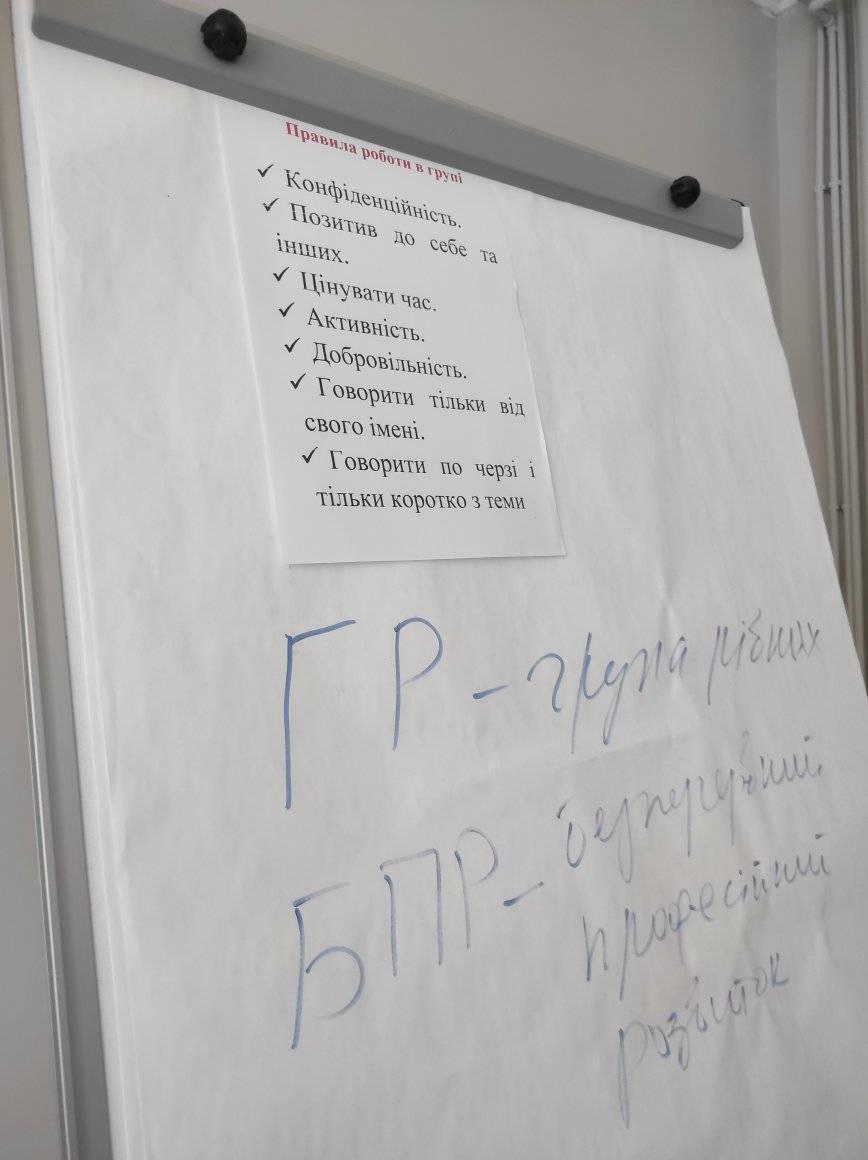 Правила роботи в групі
✓ Конфіденційність.
✓ Позитив до себе та
інших.
✓ Цінувати час.
✓ Активність.
✓ Добровільність.
✓ Говорити тільки від
свого імені.
✓ Говорити по черзі і
тільки коротко з теми
ГР - група рівних
БПР - безперервний
професійний
розвиток